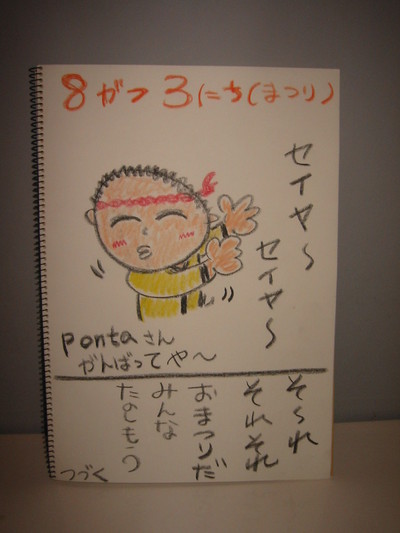 8がつ3にち(まつり)
セイヤ〜
セイヤ〜
pontaさん
がんばってや〜
そ〜れ
それそれ
おまつりだ
みんな
たのもう
つづく